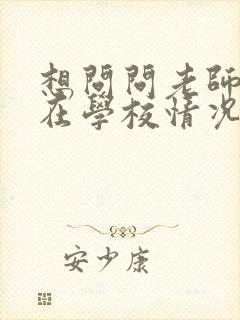 想問問老師
在學校情况
安少康